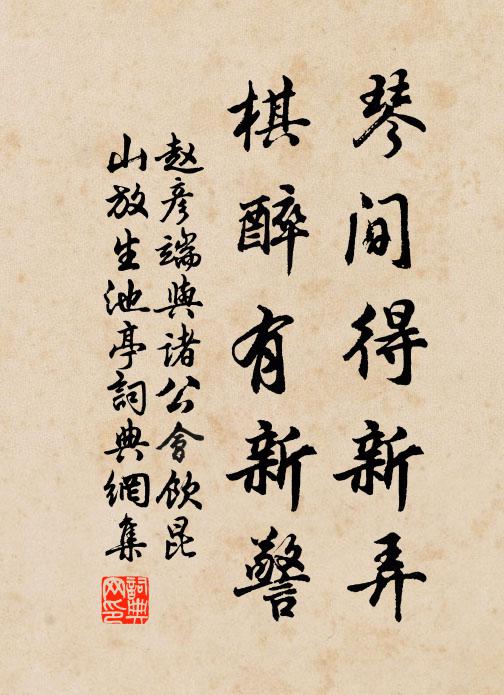 琴間得新弄
棋醉有新警
赵彦端與诸公會饮昆
山放生池亭詞典網集
詞典網印